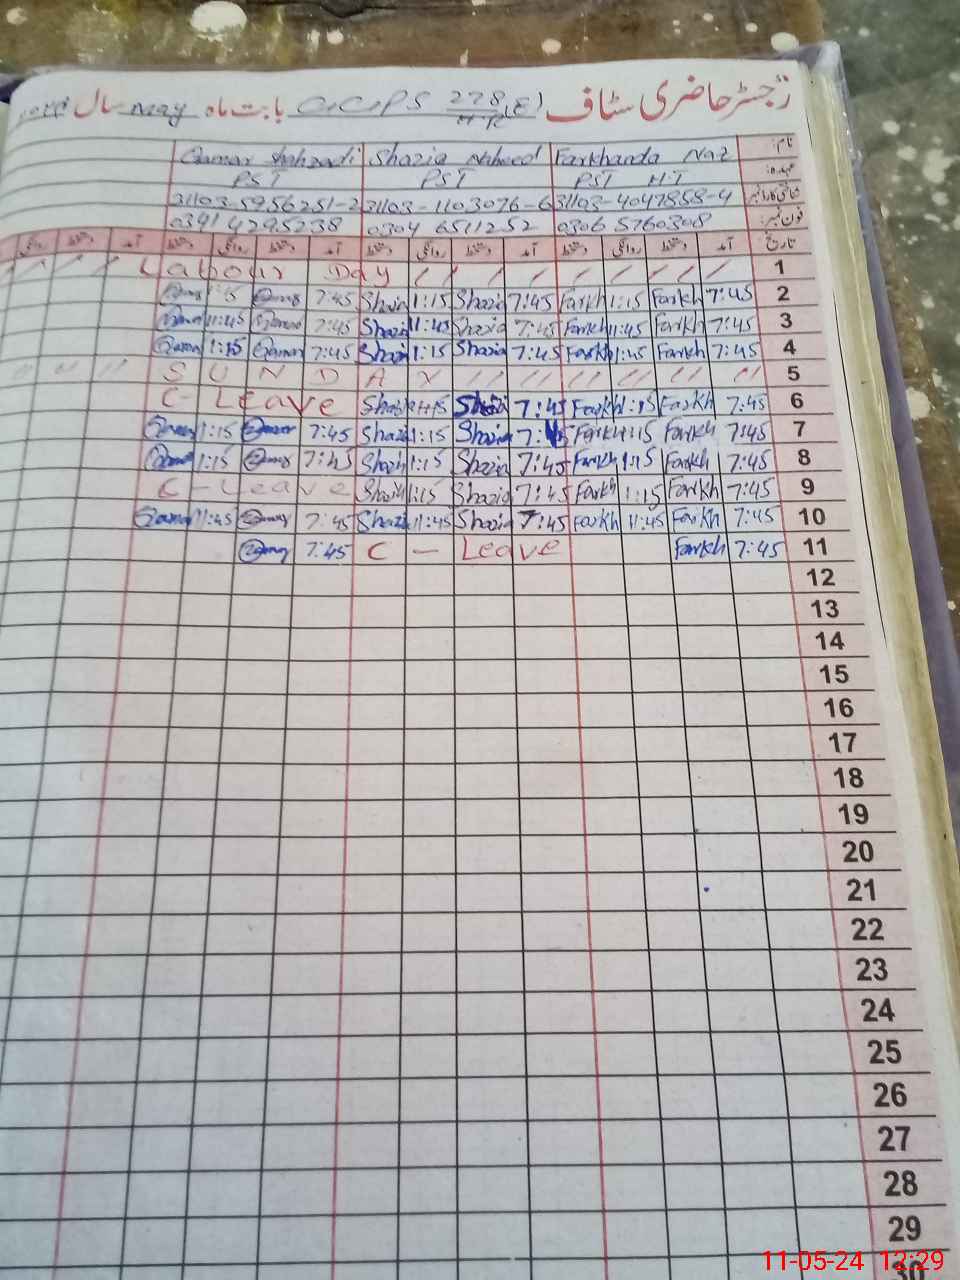 رجسٹر حاضری سٹاف G.G.P.S 228/H.R(E) بابت ماہ May سال
نام: Farkhanda Naz Shazia Naheed Qamar Shahzadi
عہدہ: PST HT PST PST
شناختی کارڈ نمبر 31103-4047858-4 31103-1103076-6 31103-5956251-2
فون نمبر: 0306 5760308 0304 6511252 0341 4295238
تاریخ آمد دستخط روانگی دستخط آمد دستخط روانگی دستخط آمد دستخط روانگی دستخط آمد دستخط روانگی
1 Labour Day
2 7:45 Farkh 1:15 Farkh 7:45 Shazia 1:15 Shazia 7:45 Qamar 1:15 Qamar
3 7:45 Farkh 11:45 Farkh 7:45 Shazia 11:45 Shazia 7:45 Qamar 11:45 Qamar
4 7:45 Farkh 1:15 Farkh 7:45 Shazia 1:15 Shazia 7:45 Qamar 1:15 Qamar
5 SUNDAY
6 7:45 Farkh 1:15 Farkh 7:45 Shazia 1:15 Shazia C-Leave
7 7:45 Farkh 1:15 Farkh 7:45 Shazia 1:15 Shazia 7:45 Qamar 1:15 Qamar
8 7:45 Farkh 1:15 Farkh 7:45 Shazia 1:15 Shazia 7:45 Qamar 1:15 Qamar
9 7:45 Farkh 1:15 Farkh 7:45 Shazia 1:15 Shazia C-Leave
10 7:45 Farkh 11:45 Farkh 7:45 Shazia 11:45 Shazia 7:45 Qamar 11:45 Qamar
11 7:45 Farkh C - Leave 7:45 Qamar
12
13
14
15
16
17
18
19
20
21
22
23
24
25
26
27
28
29
30
11-05-24 12:29